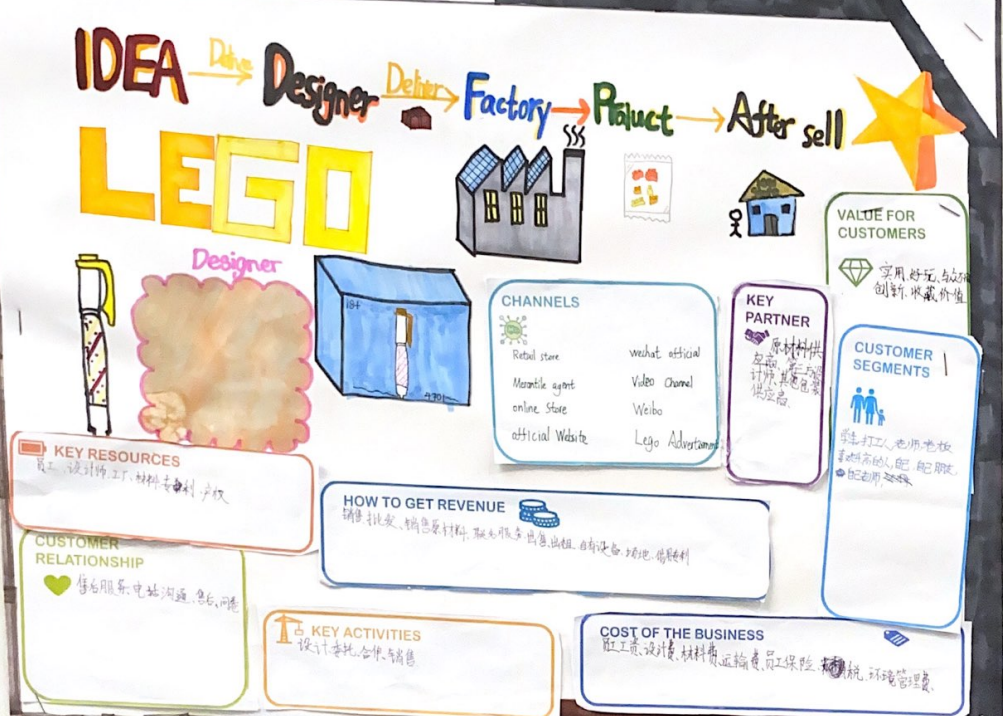 IDEA
Designer
Deliver
Factory
After sell
LEGO
Designer
18+
VALUE FOR
CUSTOMERS
实用、好玩、
创新、收藏价值
CHANNELS
Retail store
wechat official
Mercantile agent
Video Channel
online Store
Weibo
official Website
Lego
KEY
PARTNER
原材料供
应商、
计师、其他包装
供应商、
CUSTOMER
SEGMENTS
学生、打工人、老师、老板
KEY RESOURCES
员工、设计师、工厂、材料、专利、产权
HOW TO GET REVENUE
销售、批发、销售原材料、出售、出租、自有设备、场地、专利
CUSTOMER
RELATIONSHIP
售后服务、电话沟通、售后、问卷
KEY ACTIVITIES
设计、委托、合作、销售
COST OF THE BUSINESS
员工工资、设计费、材料费、运输费、员工保险、税、环境管理费、